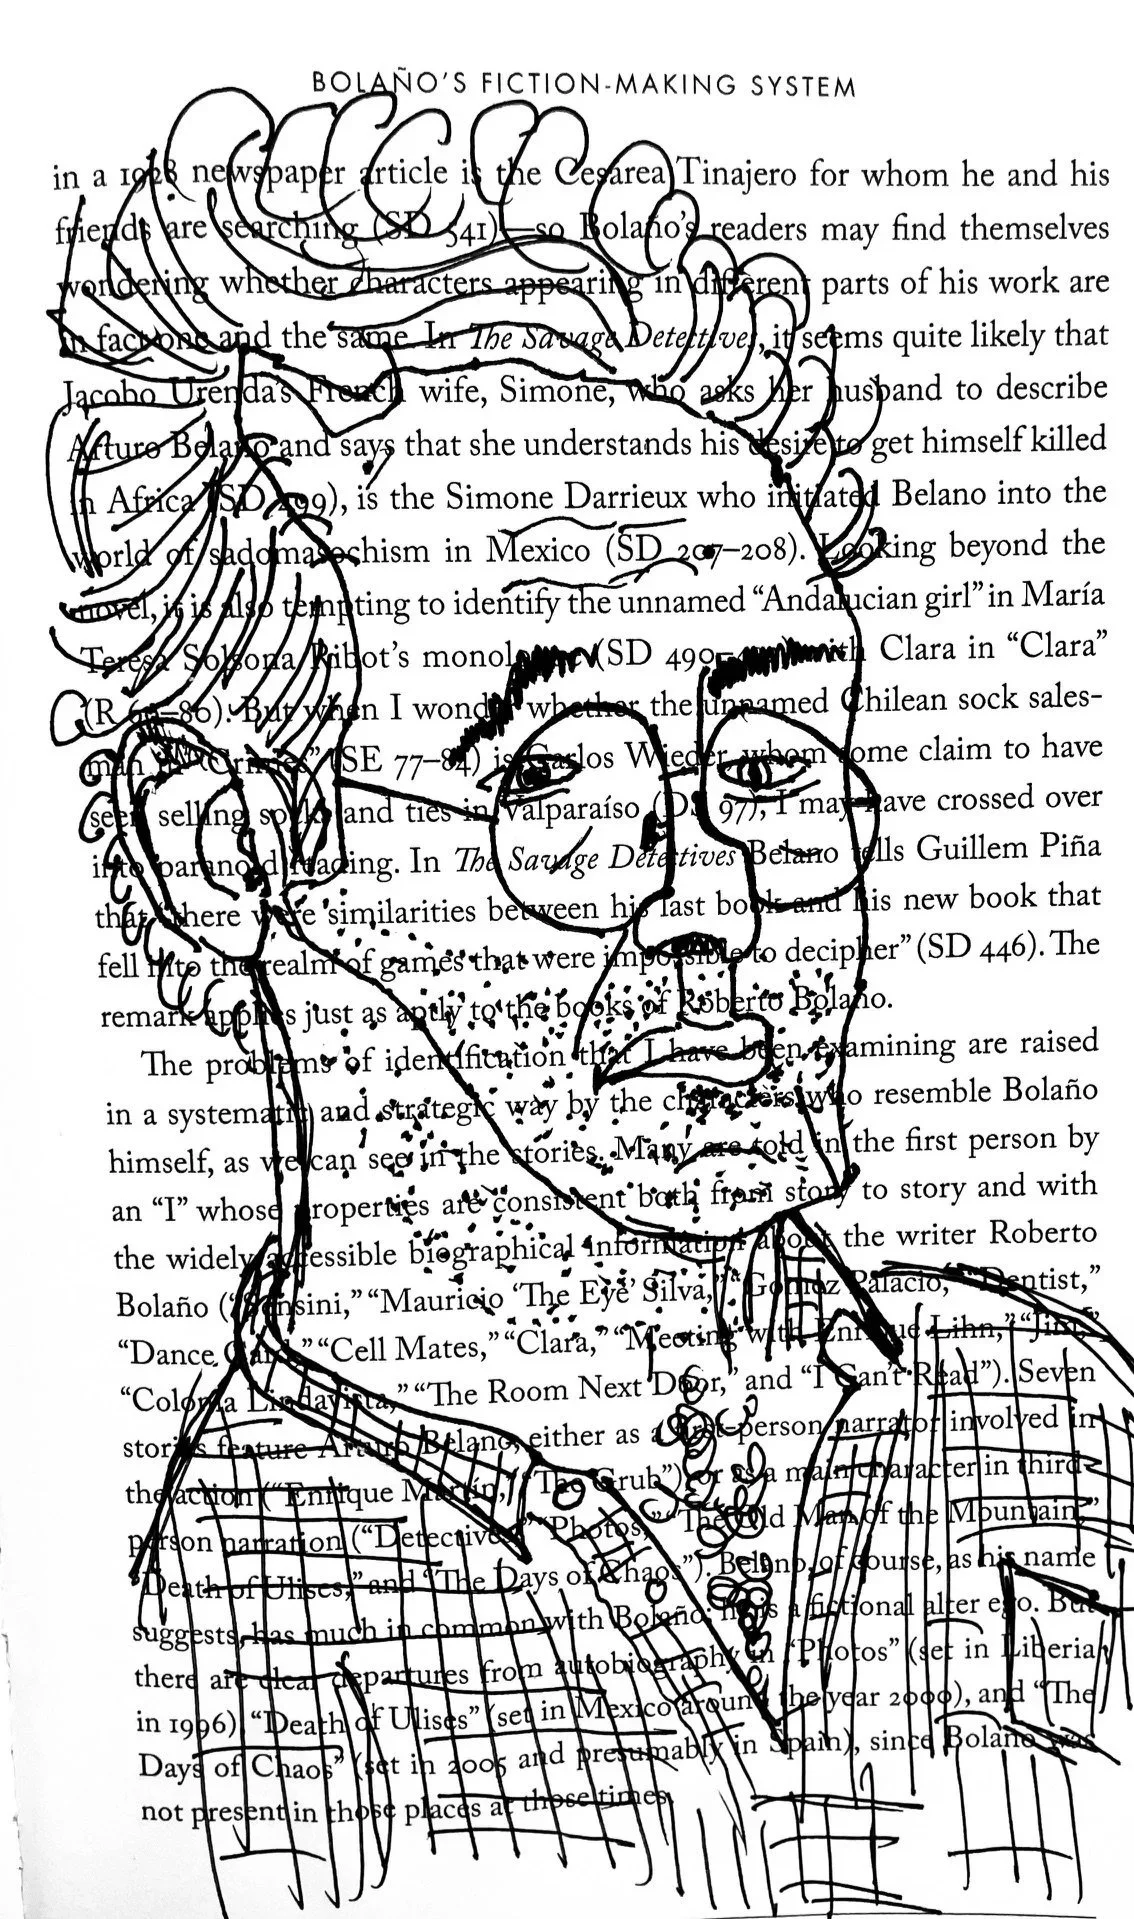 BOLAÑO'S FICTION-MAKING SYSTEM
in a 1928 newspaper article is the Cesárea Tinajero for whom he and his
friends are searching (SD 541)—so Bolaño's readers may find themselves
wondering whether characters appearing in different parts of his work are
in fact one and the same. In The Savage Detectives, it seems quite likely that
Jacobo Urenda's French wife, Simone, who asks her husband to describe
Arturo Belano and says that she understands his desire to get himself killed
in Africa (SD 499), is the Simone Darrieux who initiated Belano into the
world of sadomasochism in Mexico (SD 207–208). Looking beyond the
novel, it is also tempting to identify the unnamed “Andalucian girl” in María
Teresa Solsona Ribot's monologue (SD 490– with Clara in “Clara”
(R –86). But when I wonder whether the unnamed Chilean sock sales-
man in “Crimes” (SE 77–84) is Carlos Wieder, whom some claim to have
seen selling socks and ties in Valparaíso (DS 97), I may have crossed over
into paranoid reading. In The Savage Detectives Belano tells Guillem Piña
that “there were similarities between his last book and his new book that
fell into the realm of games that were impossible to decipher” (SD 446). The
remark applies just as aptly to the books of Roberto Bolaño.
The problems of identification that I have been examining are raised
in a systematic and strategic way by the characters who resemble Bolaño
himself, as we can see in the stories. Many are told in the first person by
an “I” whose properties are consistent both from story to story and with
the widely accessible biographical information about the writer Roberto
Bolaño (“Sensini,” “Mauricio ‘The Eye’ Silva,” “Gómez Palacio,” “Dentist,”
“Dance Card,” “Cell Mates,” “Clara,” “Meeting with Enrique Lihn,” “Jim,”
“Colonia Lindavista,” “The Room Next Door,” and “I Can't Read”). Seven
stories feature Arturo Belano, either as a first-person narrator involved in
the action (“Enrique Martín,” “The Grub”) or as a main character in third-
person narration (“Detectives,” “Photos,” “The Old Man of the Mountain,”
“Death of Ulises,” and “The Days of Chaos”). Belano, of course, as his name
suggests, has much in common with Bolaño: he is a fictional alter ego. But
there are clear departures from autobiography in “Photos” (set in Liberia
in 1996), “Death of Ulises” (set in Mexico around the year 2000), and “The
Days of Chaos” (set in 2005 and presumably in Spain), since Bolaño was
not present in those places at those times.